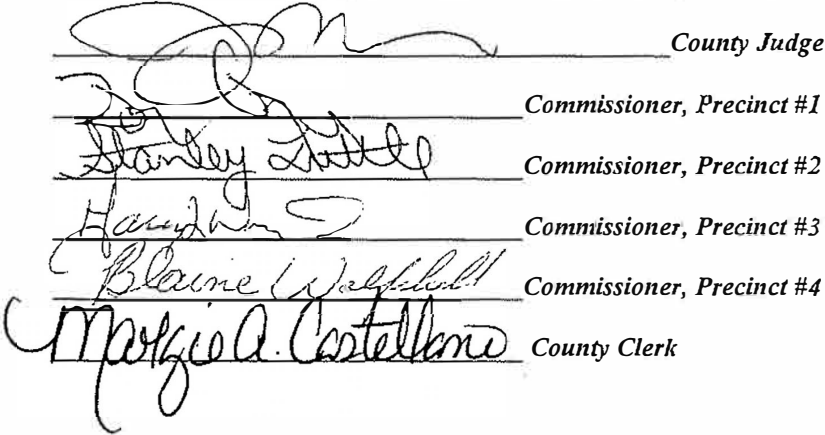 County Judge
Commissioner, Precinct #1
Stanley Tuttle Commissioner, Precinct #2
Commissioner, Precinct #3
Blaine Commissioner, Precinct #4
Margie A. Castellano County Clerk